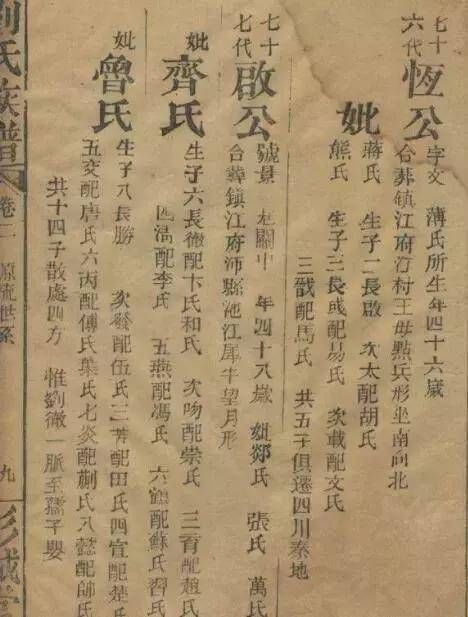 七十六代
恆公
字文 薄氏所生年四十六歲
合葬鎮江府汀村王母點兵形坐南向北
妣
蔣氏 生子二長啟 次太配胡氏
熊氏 生子三長彧配易氏 次載配文氏
三戩配馬氏 共五子俱遷四川秦地
七十七代
啟公
號景 關中 年四十八歲 妣鄒氏 張氏 萬氏
合葬鎮江府沛縣池江犀牛望月形
妣
齊氏
生子六長徽配卞氏和氏 次吻配崇氏 三育配趙氏
四配李氏 五燕配馮氏 六配蘇氏習氏
妣
曾氏
生子八長勝 次發配伍氏三芳配田氏四宣配楚氏
五交配唐氏六丙配傅氏葉氏七炎配蒯氏八懿配師氏
共十四子散處四方 惟劉徵一脈至孺子嬰
劉氏族譜
卷二 源流世系
九
彭城